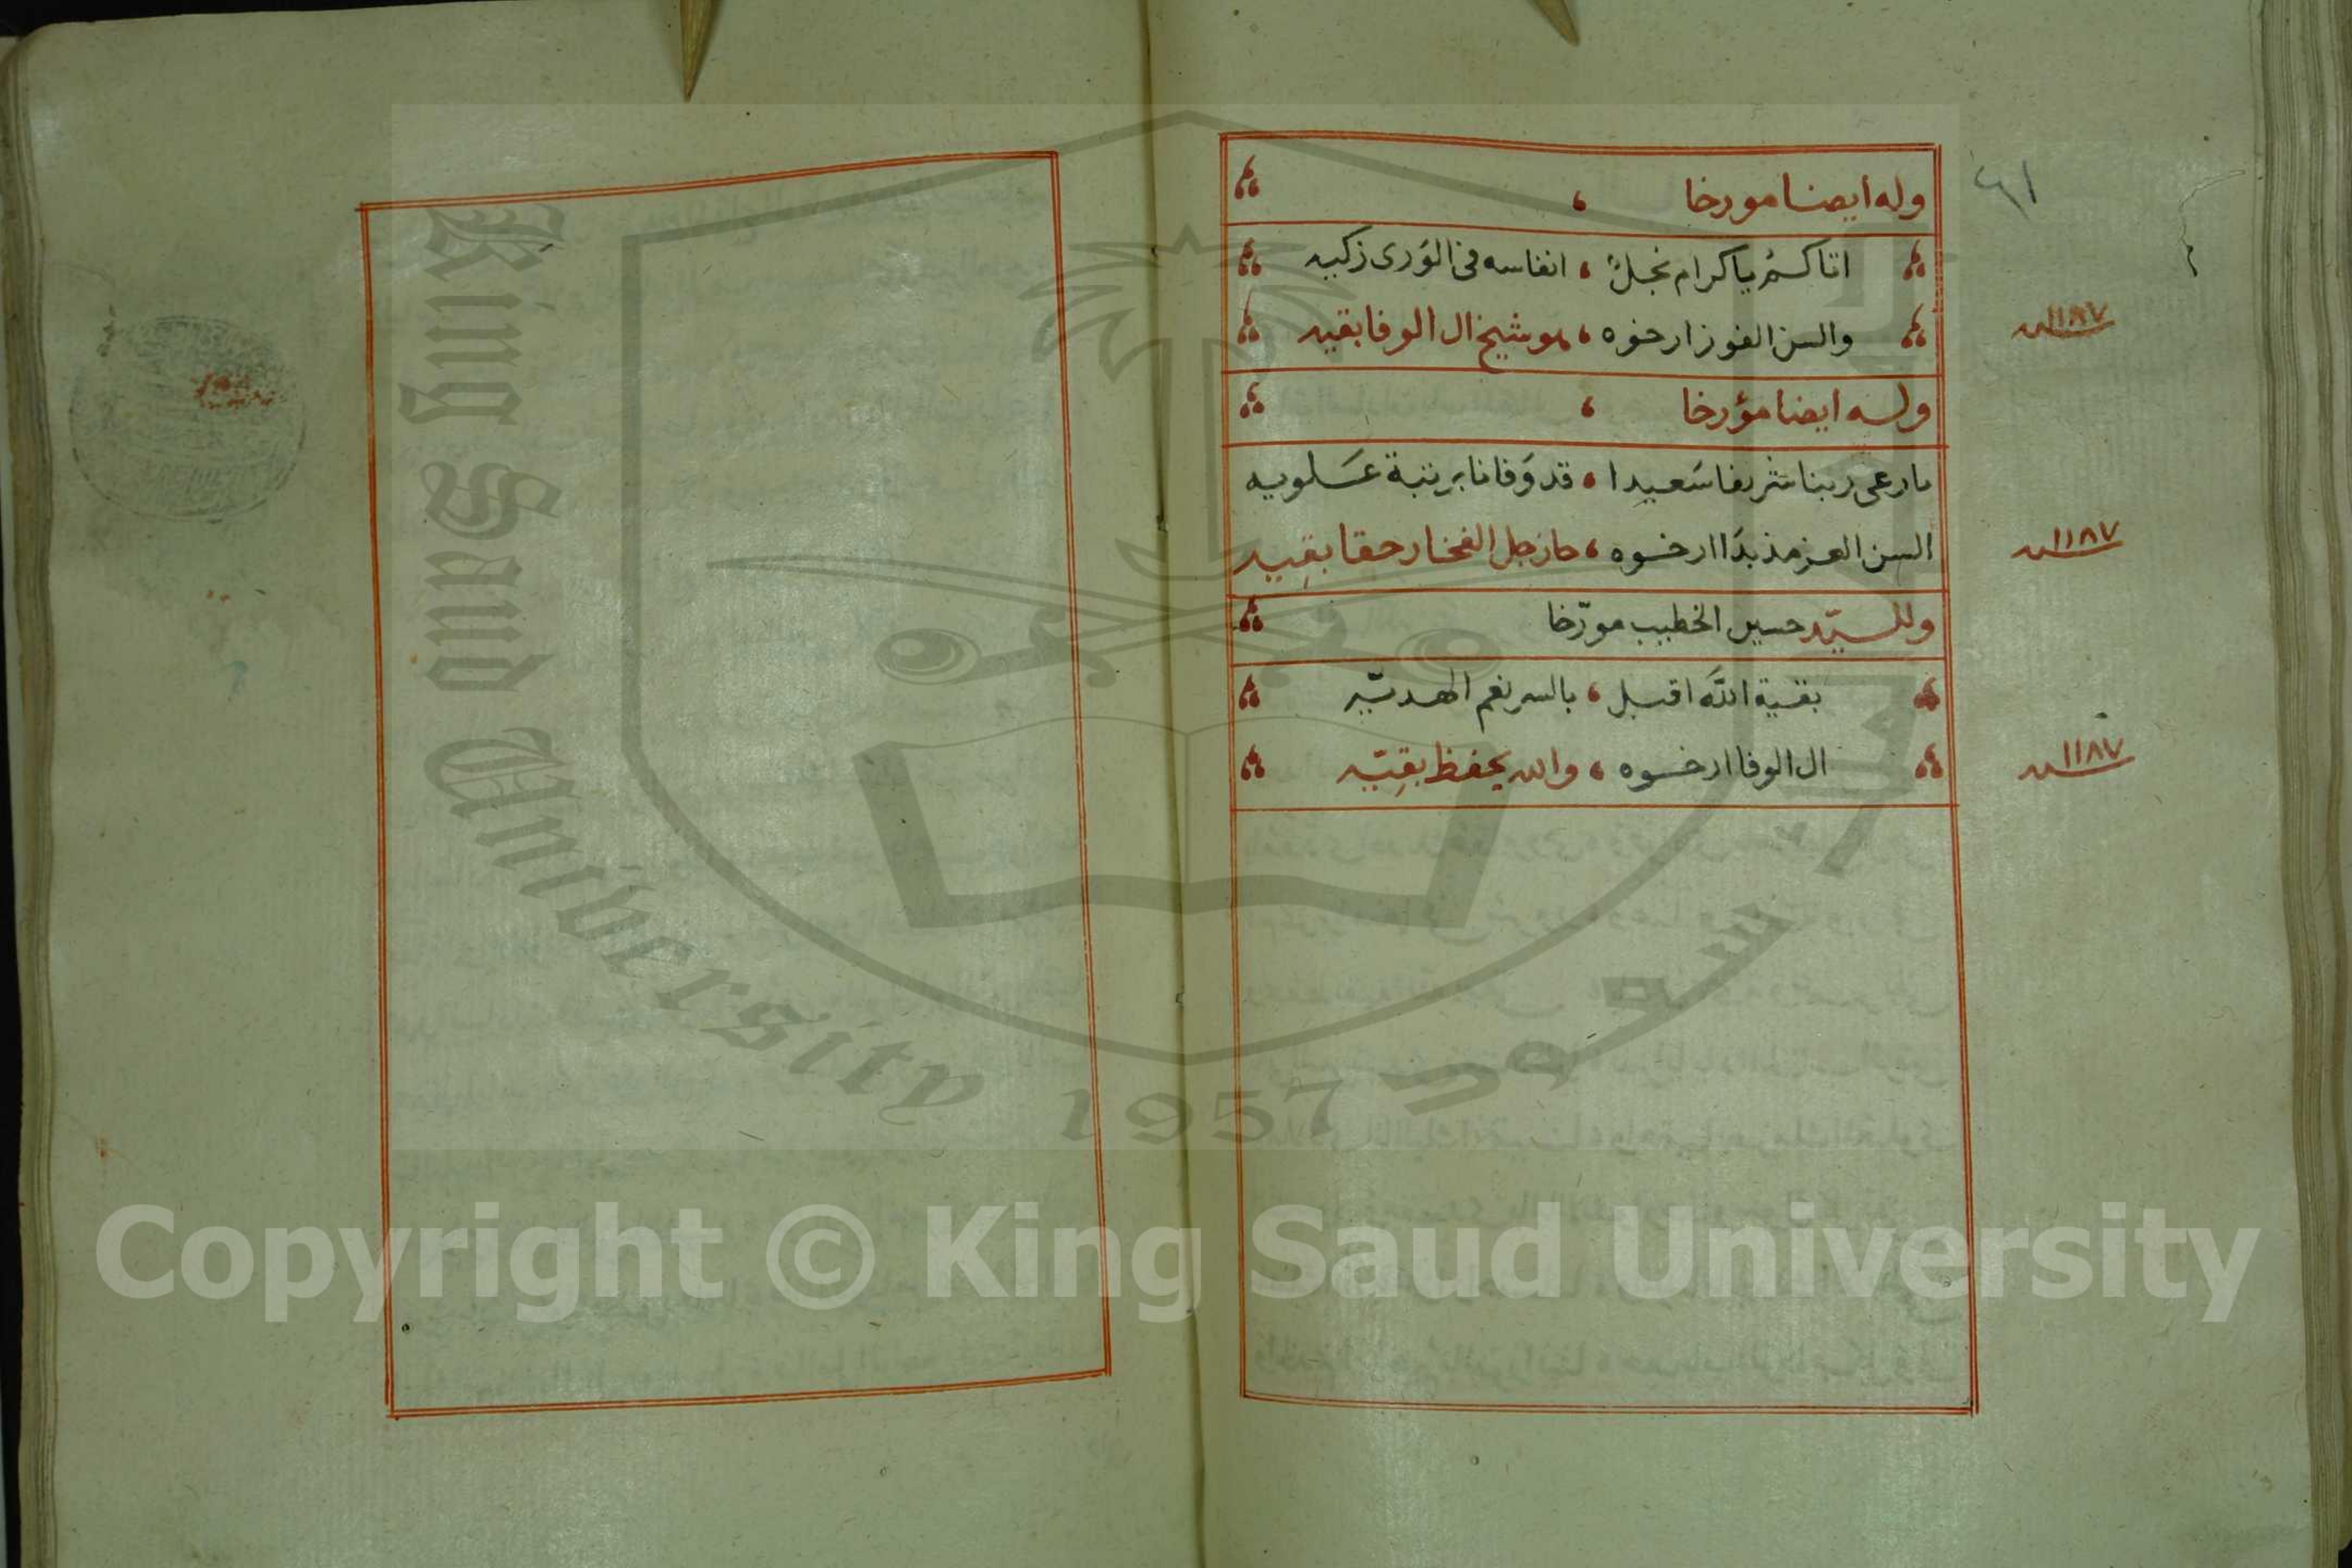 ٦١
وله ايضا مورخا
اتاكم يا كرام نجل ، انفاسه في الورى زكيه
والسن الفوز ارخوه ، هو شيخ ال الوفا بقيه
١١٨٧
وله ايضا مؤرخا
يا رعى ربنا شريفا سعيدا ، قد وفانا برتبة علويه
السن العز مذ بدا ارخوه ، حاز جل الفخار حقا بقيه
١١٨٧
وللسيد حسين الخطيب مورّخا
بقية الله اقبل ، بالسر نعم الهديّه
ال الوفا ارخوه ، والله يحفظ بقيّه
١١٨٧
King Saud University
1957
Copyright © King Saud University